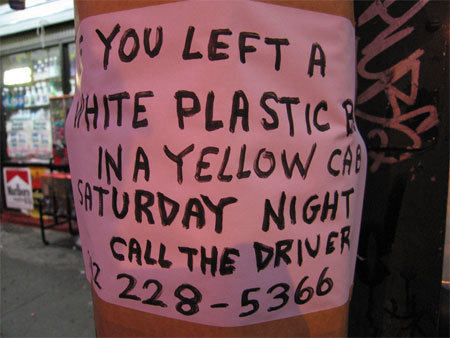 YOU LEFT A
WHITE PLASTIC
IN A YELLOW CAB
SATURDAY NIGHT
CALL THE DRIVER
2 228-5366
Marlboro